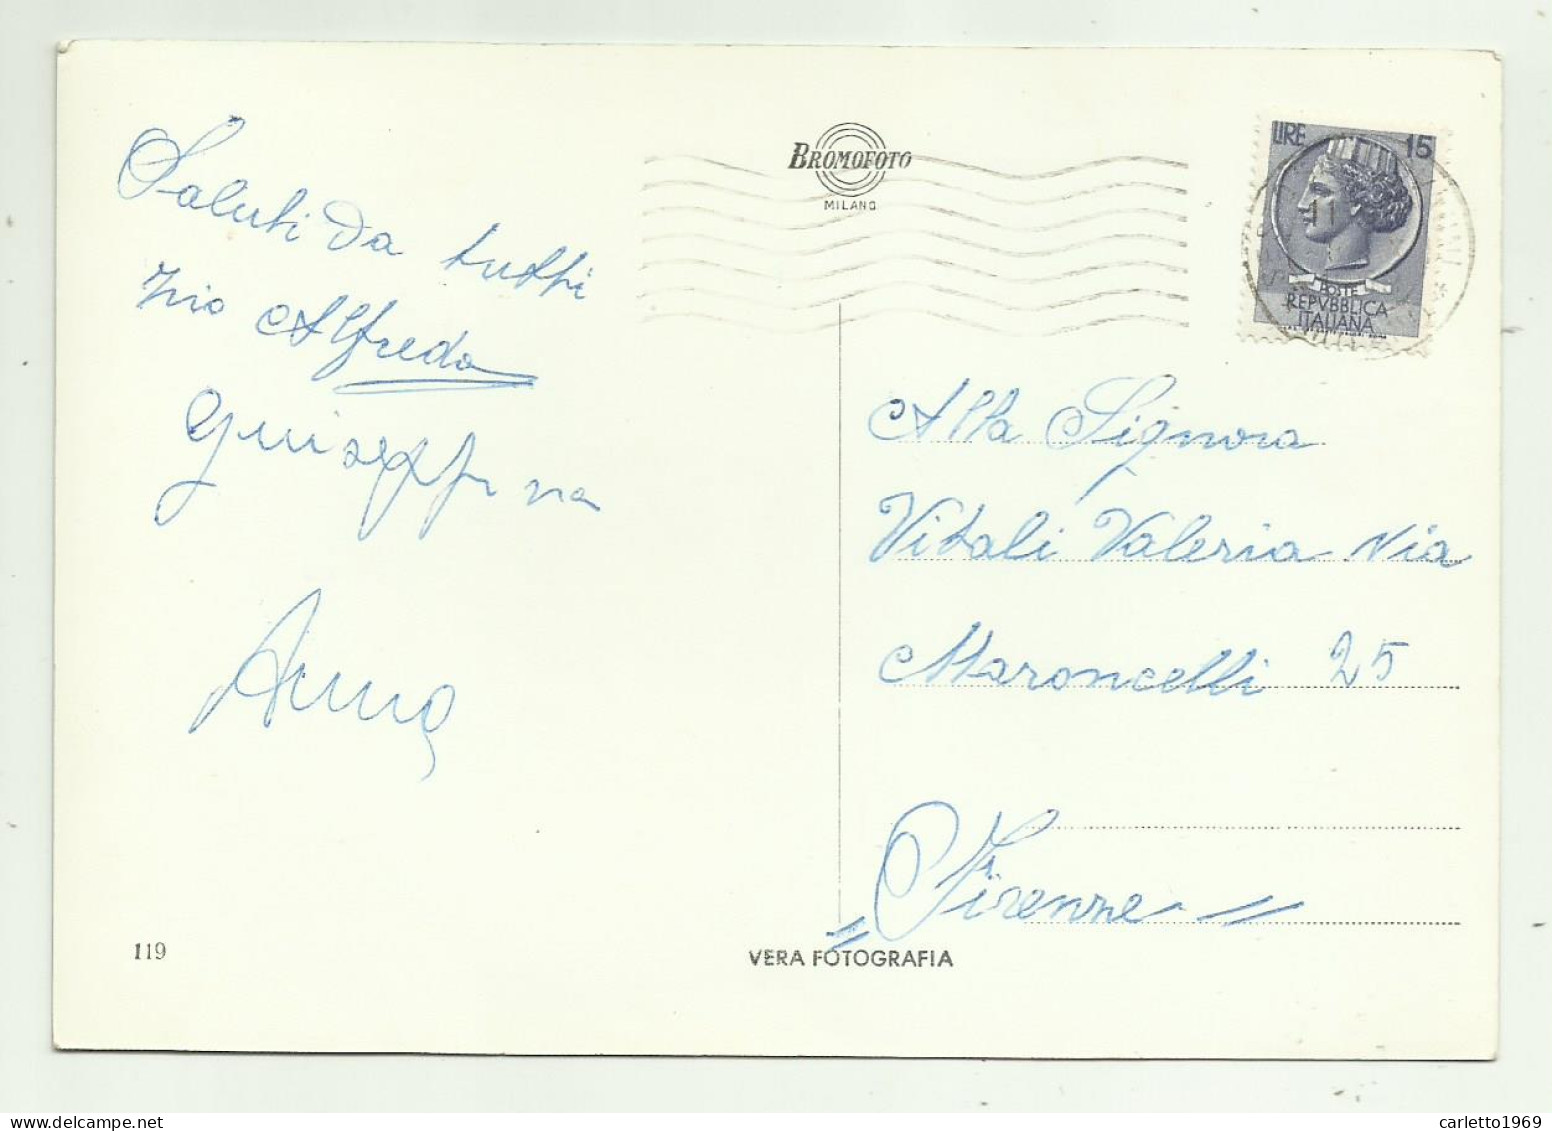 Saluti da tutti
Zio Alfredo
Giuseppina
Anna
119
BROMOFOTO
MILANO
LIRE 15
POSTE
REPVBBLICA
ITALIANA
Alla Signora
Vitali Valeria Via
Maroncelli 25
Firenze
VERA FOTOGRAFIA
carletto1969